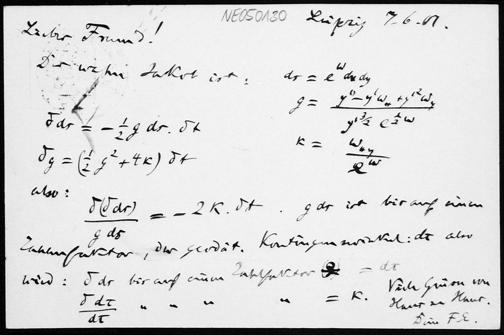 NE050130
Leipzig 7.6.
Lieber Freund!
Der wahre ist: ds = e^w dx dy
g = (y'' - y'w_x + y'^2 w_y) / (y'^{3/2} e^{½w})
δds = -½ g ds. δt
δg = (½ g² + 4K) δt
K = w_xy / e^w
also:
δ(δds) / g ds = -2K. δt . g ds ist bis auf einen
Zahlenfaktor, der geodät. Kontingenzwinkel: dτ also
wird: δds bis auf einen Zahlfaktor = dτ
δdτ / dτ " " " " = K.
Viele Grüsse von
Haus zu Haus.
Dein F.E.